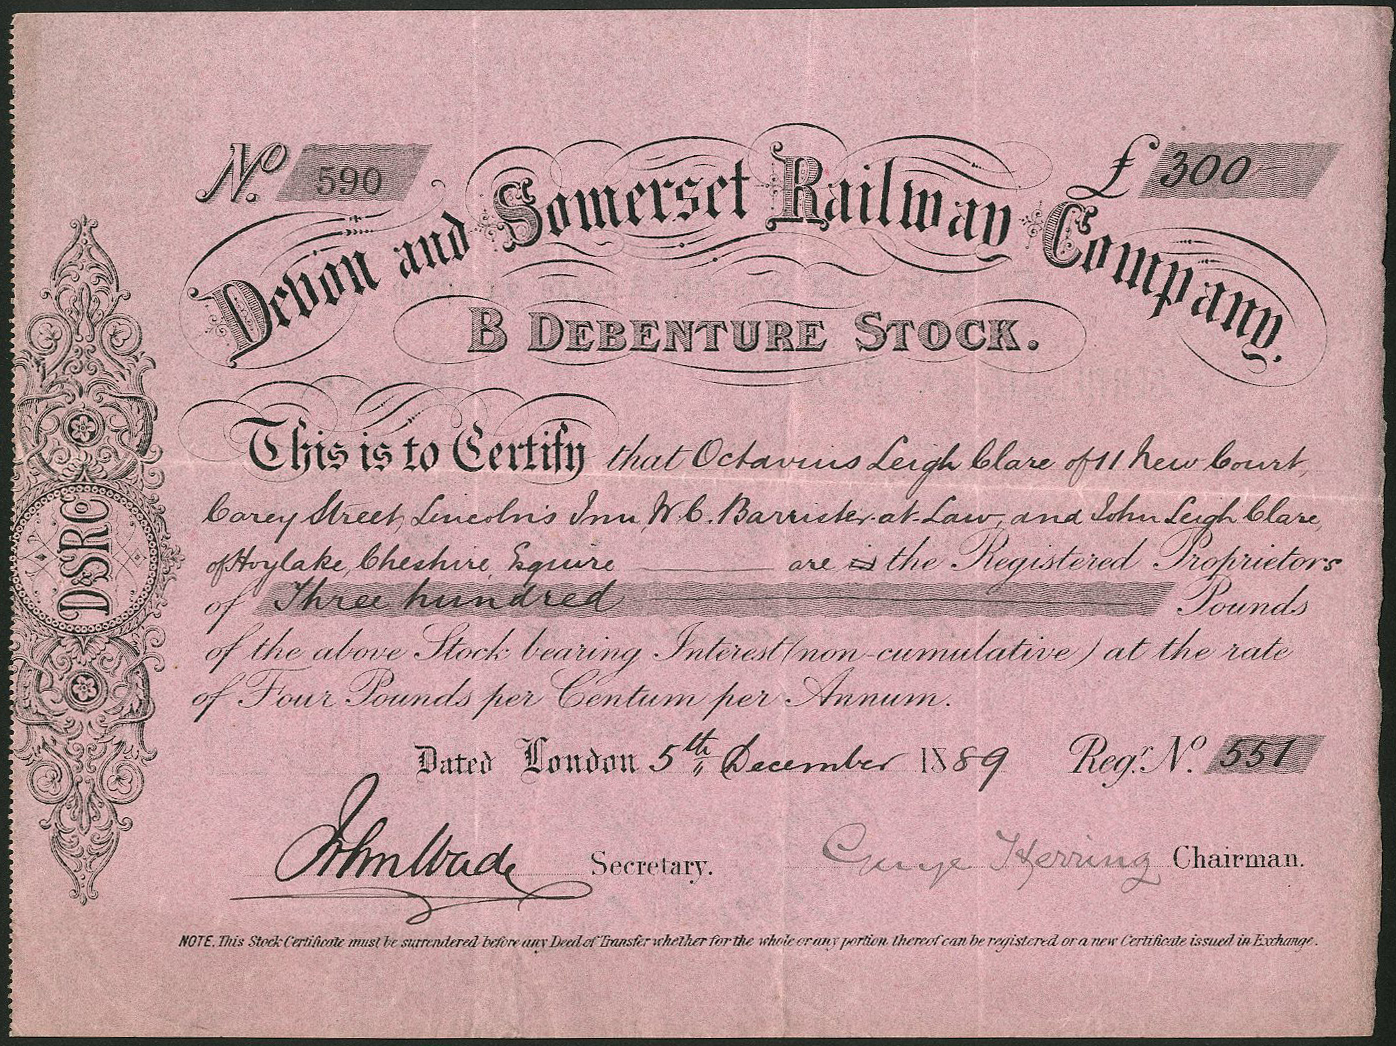 No. 590
£ 300
Devon and Somerset Railway Company.
B DEBENTURE STOCK.
This is to Certify that Octavius Leigh Clare of 11 New Court,
Carey Street, Lincoln's Inn, W.C. Barrister-at-Law, and John Leigh Clare,
of Hoylake, Cheshire, Esquire are is the Registered Proprietors
of Three hundred Pounds
of the above Stock bearing Interest (non-cumulative) at the rate
of Four Pounds per Centum per Annum.
Dated London 5th December 1889 Regr. No. 551
John Wade Secretary. George Herring Chairman.
NOTE. This Stock Certificate must be surrendered before any Deed of Transfer whether for the whole or any portion thereof can be registered or a new Certificate issued in Exchange.
D&SRC